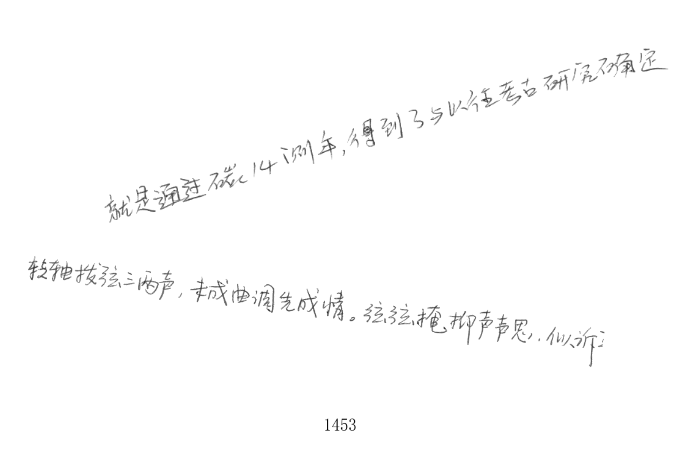 就是通过碳14测年,得到了与以往考古研究不确定
转轴拨弦三两声,未成曲调先成情。弦弦掩抑声声思,似诉
1453